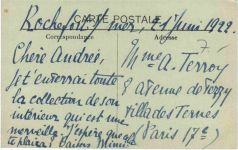 Rochefort s/mer, 21 Juin 1922.
CARTE POSTALE
Correspondance
Adresse
Chère Andrée,
Je t'enverrai toute
la collection de son
intérieur qui est une
merveille. J'espère que ça
te plaira. Baisers Mimi
Mme A. Terroy
8 avenue de Verzy
Villa des Ternes
Paris 17e)